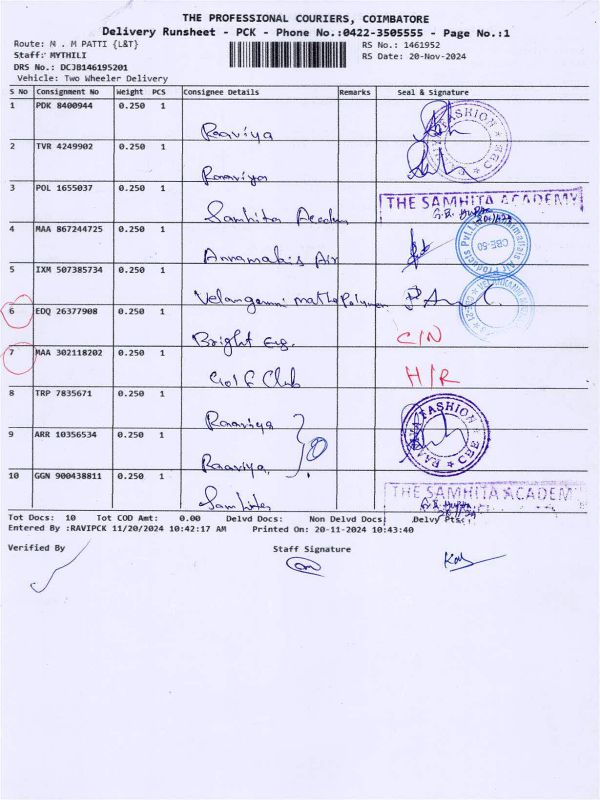 THE PROFESSIONAL COURIERS, COIMBATORE
Delivery Runsheet - PCK - Phone No.:0422-3505555 - Page No.:1
Route: M . M PATTI {L&T} RS No.: 1461952
Staff: MYTHILI RS Date: 20-Nov-2024
DRS No.: DCJB146195201
Vehicle: Two Wheeler Delivery
S No Consignment No Weight PCS Consignee Details Remarks Seal & Signature
1 PDK 8400944 0.250 1 Raaviya FASHION CBE
2 TVR 4249902 0.250 1 Raaviya
3 POL 1655037 0.250 1 Samhita Academy THE SAMHITA ACADEMY
4 MAA 867244725 0.250 1 Annamalais Air CBE-50
5 IXM 507385734 0.250 1 Velanganni Polymer
6 EDQ 26377908 0.250 1 Bright Eng. C/N
7 MAA 302118202 0.250 1 Golf Club H/R
8 TRP 7835671 0.250 1 Raaviya FASHION CBE
9 ARR 10356534 0.250 1 Raaviya
10 GGN 900438811 0.250 1 Samhita THE SAMHITA ACADEM
Tot Docs: 10 Tot COD Amt: 0.00 Delvd Docs: Non Delvd Docs: Delvy Pts:
Entered By :RAVIPCK 11/20/2024 10:42:17 AM Printed On: 20-11-2024 10:43:40
Verified By Staff Signature